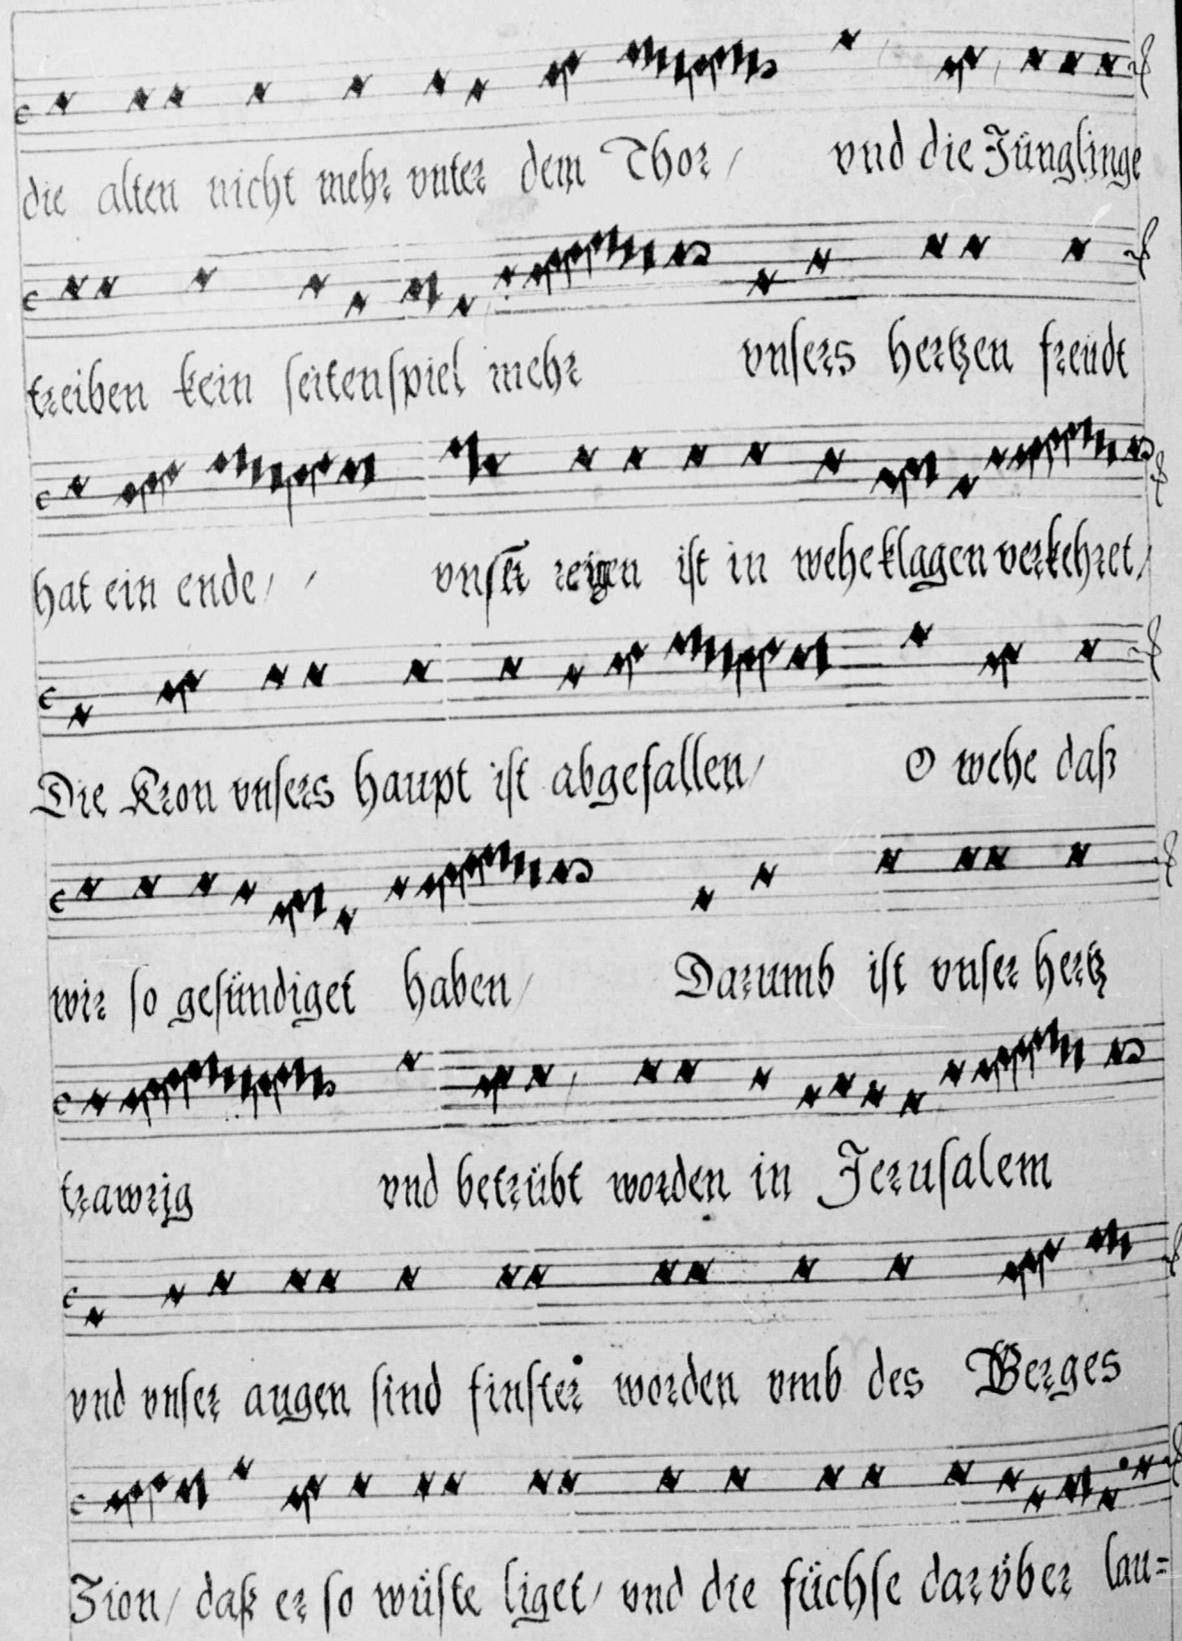 die alten nicht mehr vnter dem Thor / vnd die Jünglinge
treiben kein seitenspiel mehr vnsers hertzen freüdt
hat ein ende / / vnser reigen ist in weheklagen verkehret /
Die Kron vnsers haupt ist abgefallen / O wehe daß
wir so gesündiget haben / Darumb ist vnser hertz
trawrig vnd betrübt worden in Jerusalem
vnd vnser augen sind finster worden vmb des Berges
Zion / daß er so wüste liget / vnd die füchse darüber lau=